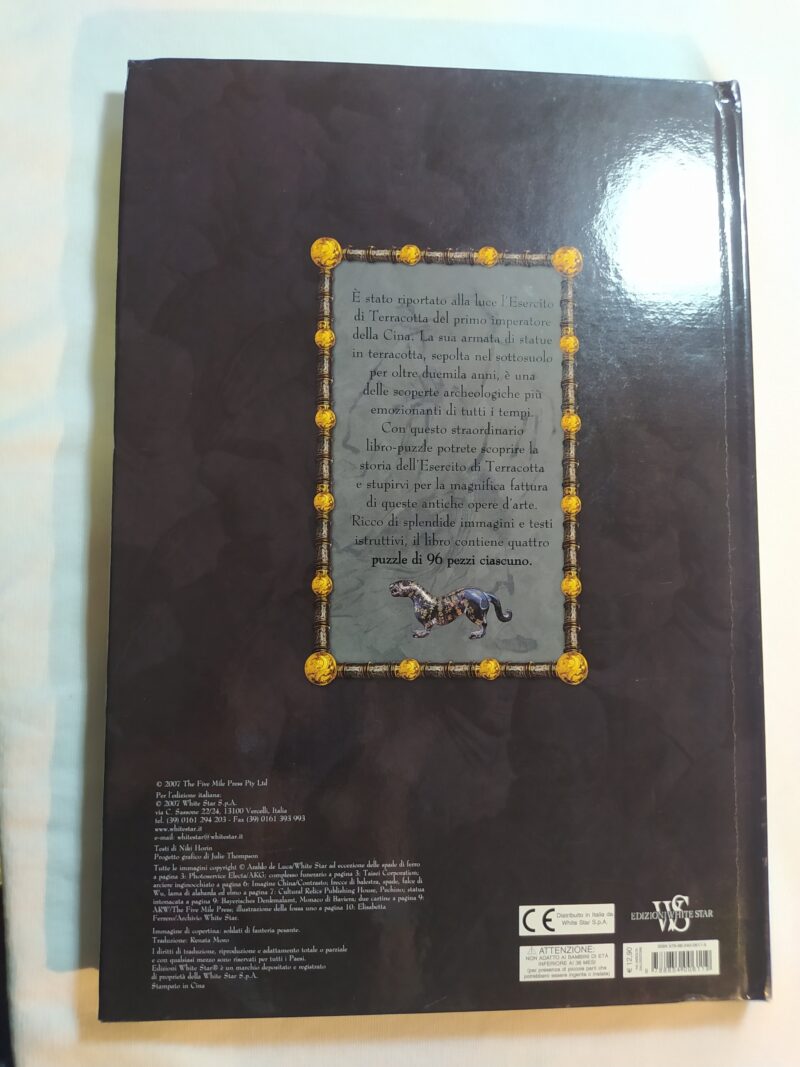 È stato riportato alla luce l'Esercito
di Terracotta del primo imperatore
della Cina. La sua armata di statue
in terracotta, sepolta nel sottosuolo
per oltre duemila anni, è una
delle scoperte archeologiche più
emozionanti di tutti i tempi.
Con questo straordinario
libro-puzzle potrete scoprire la
storia dell'Esercito di Terracotta
e stupirvi per la magnifica fattura
di queste antiche opere d'arte.
Ricco di splendide immagini e testi
istruttivi, il libro contiene quattro
puzzle di 96 pezzi ciascuno.
© 2007 The Five Mile Press Pty Ltd
Per l'edizione italiana:
© 2007 White Star S.p.A.
via C. Sassone 22/24, 13100 Vercelli, Italia
tel. (39) 0161 294 203 - Fax (39) 0161 393 993
www.whitestar.it
e-mail: whitestar@whitestar.it
Testi di Niki Horin
Progetto grafico di Julie Thompson
Tutte le immagini copyright © Araldo de Luca/White Star ad eccezione delle spade di ferro
a pagina 3: Photoservice Electa/AKG; complesso funerario a pagina 3: Taisei Corporation;
arciere inginocchiato a pagina 6: Imagine China/Contrasto; frecce di balestra, spade, falce di
Wu, lama di alabarda ed elmo a pagina 7: Cultural Relics Publishing House, Pechino; statua
intonacata a pagina 9: Bayerisches Denkmalamt, Monaco di Baviera; due cartine a pagina 9:
ARW/The Five Mile Press; illustrazione della fossa uno a pagina 10: Elisabetta
Ferrero/Archivio White Star.
Immagine di copertina: soldati di fanteria pesante.
Traduzione: Renata Moro
I diritti di traduzione, riproduzione e adattamento totale o parziale
e con qualsiasi mezzo sono riservati per tutti i Paesi.
Edizioni White Star® è un marchio depositato e registrato
di proprietà della White Star S.p.A.
Stampato in Cina
CE
Distribuito in Italia da
White Star S.p.A.
WS
EDIZIONI WHITE STAR
ATTENZIONE:
NON ADATTO AI BAMBINI DI ETÀ
INFERIORE AI 36 MESI
(per presenza di piccole parti che
potrebbero essere ingerite o inalate)
€ 12,90